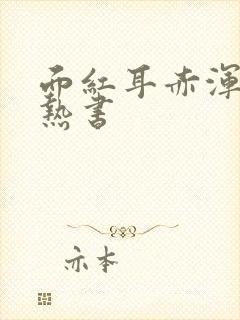 面紅耳赤渾
熱書
亦本